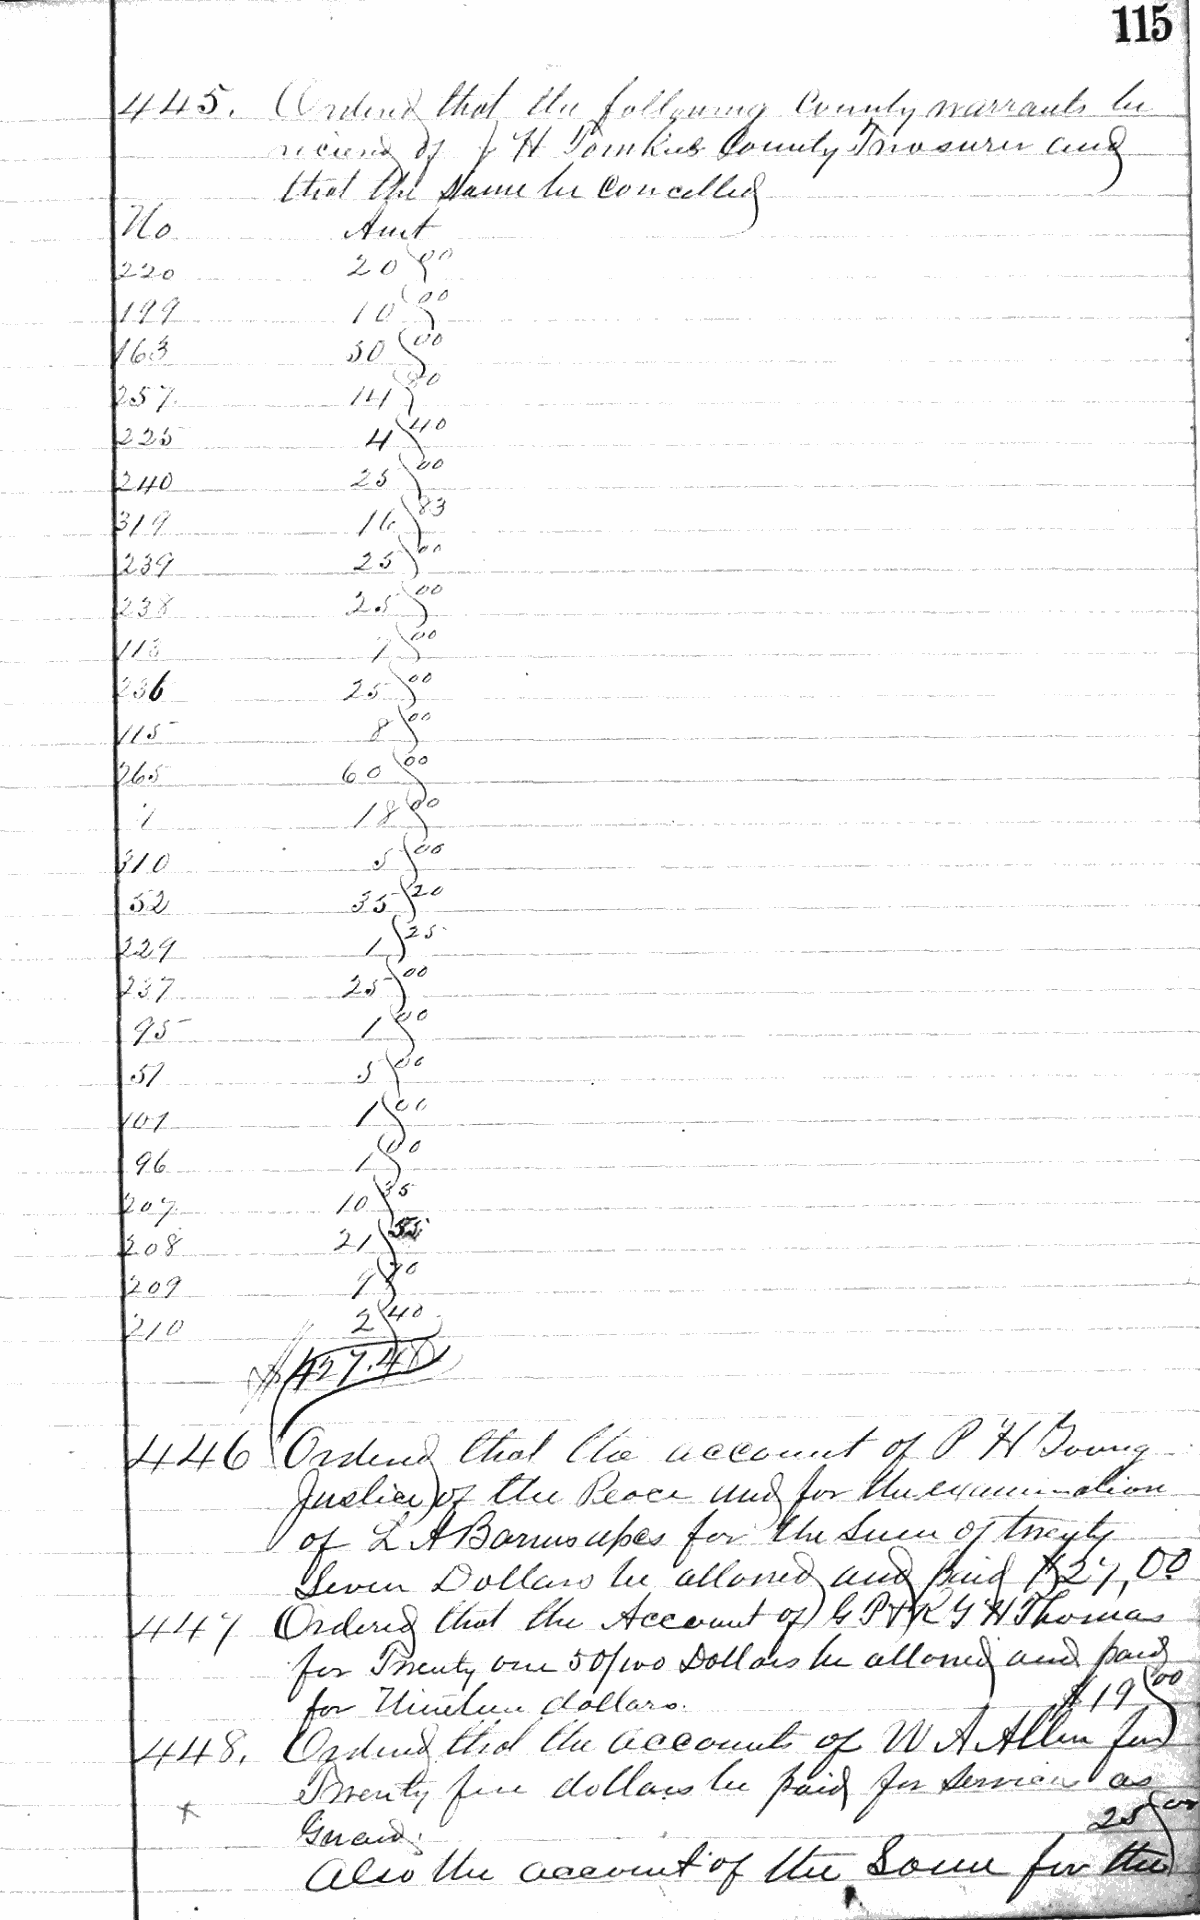 115
445. Ordered that the following County warrants be
received of J H Tomkies County Treasurer and
that the Same be Cancelled
No Amt
220 20 00
199 10 00
163 50 00
257 14 80
225 4 40
240 25 00
319 16 83
239 25 00
238 25 00
113 7 00
236 25 00
115 8 00
265 60 00
7 18 00
310 5 00
52 35 20
229 1 25
237 25 00
95 1 00
51 5 00
101 1 00
96 1 00
207 10 35
208 21 55
209 9 70
210 2 40
$427.48
446 Ordered that the account of P H Young
Justice of the Peace and for the examination
of L A Barnes for the Sum of twenty
Seven Dollars be allowed and paid $27,00
447 Ordered that the Account of G P & R G H Thomas
for Twenty one 50/100 Dollars be allowed and paid
for Nineteen dollars. $19 00
448. Ordered that the accounts of W A Allen for
Twenty five dollars be paid for Services as
Guard. 25 00
Also the account of the Same for the